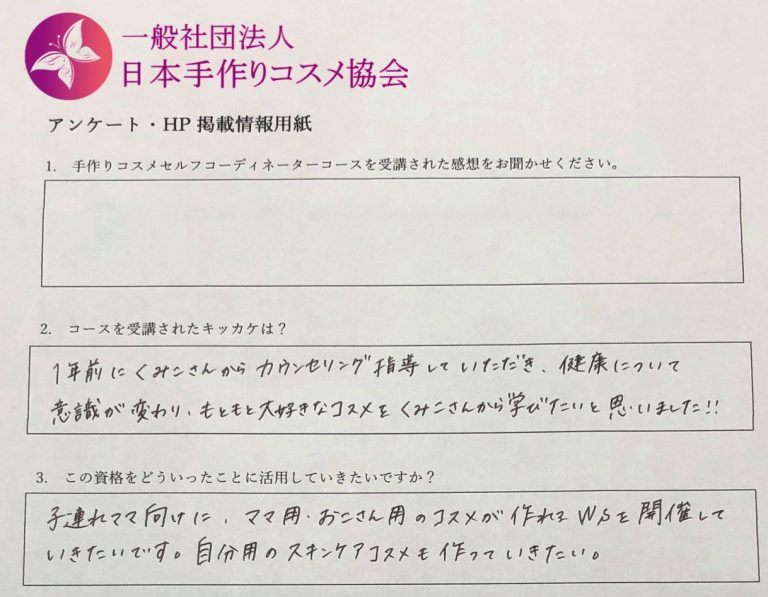 一般社団法人
日本手作りコスメ協会
アンケート・HP 掲載情報用紙
1. 手作りコスメセルフコーディネーターコースを受講された感想をお聞かせください。
2. コースを受講されたキッカケは？
1年前にくみこさんからカウンセリング指導していただき、健康について
意識が変わり、もともと大好きなコスメをくみこさんから学びたいと思いました!!
3. この資格をどういったことに活用していきたいですか？
子連れママ向けに、ママ用・おこさん用のコスメが作れるWSを開催して
いきたいです。自分用のスキンケアコスメも作っていきたい。